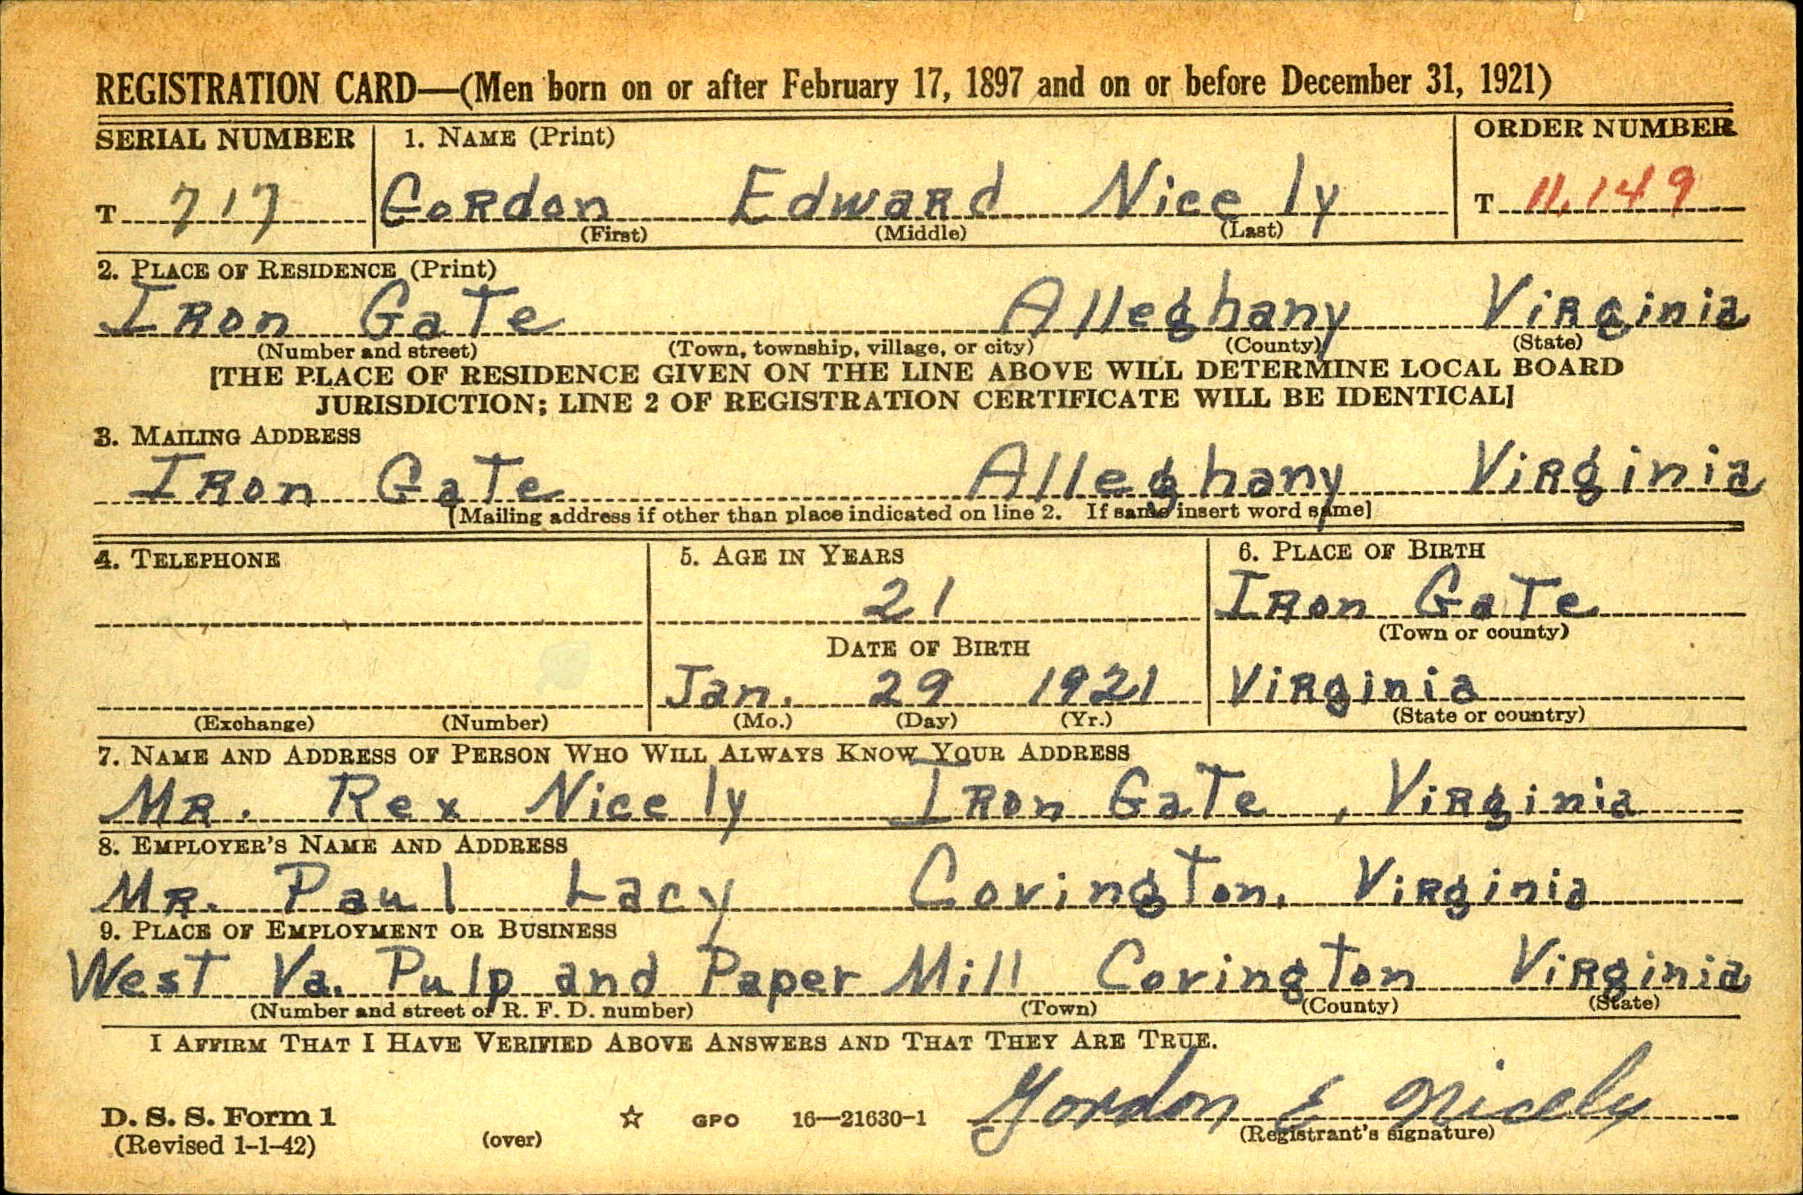 REGISTRATION CARD—(Men born on or after February 17, 1897 and on or before December 31, 1921)
SERIAL NUMBER 1. NAME (Print) ORDER NUMBER
T 717 Gordon Edward Nicely T 11,149
(First) (Middle) (Last)
2. PLACE OF RESIDENCE (Print)
Iron Gate Alleghany Virginia
(Number and street) (Town, township, village, or city) (County) (State)
[THE PLACE OF RESIDENCE GIVEN ON THE LINE ABOVE WILL DETERMINE LOCAL BOARD
JURISDICTION; LINE 2 OF REGISTRATION CERTIFICATE WILL BE IDENTICAL]
3. MAILING ADDRESS
Iron Gate Alleghany Virginia
[Mailing address if other than place indicated on line 2. If same insert word same]
4. TELEPHONE 5. AGE IN YEARS 6. PLACE OF BIRTH
21 Iron Gate
(Town or county)
DATE OF BIRTH
Jan. 29 1921 Virginia
(Exchange) (Number) (Mo.) (Day) (Yr.) (State or country)
7. NAME AND ADDRESS OF PERSON WHO WILL ALWAYS KNOW YOUR ADDRESS
MR. Rex Nicely Iron Gate, Virginia
8. EMPLOYER'S NAME AND ADDRESS
MR. Paul Lacy Covington, Virginia
9. PLACE OF EMPLOYMENT OR BUSINESS
West Va. Pulp and Paper Mill Covington Virginia
(Number and street or R. F. D. number) (Town) (County) (State)
I AFFIRM THAT I HAVE VERIFIED ABOVE ANSWERS AND THAT THEY ARE TRUE.
Gordon E Nicely
D. S. S. Form 1 ☆ GPO 16—21630-1
(Revised 1-1-42) (over) (Registrant's signature)